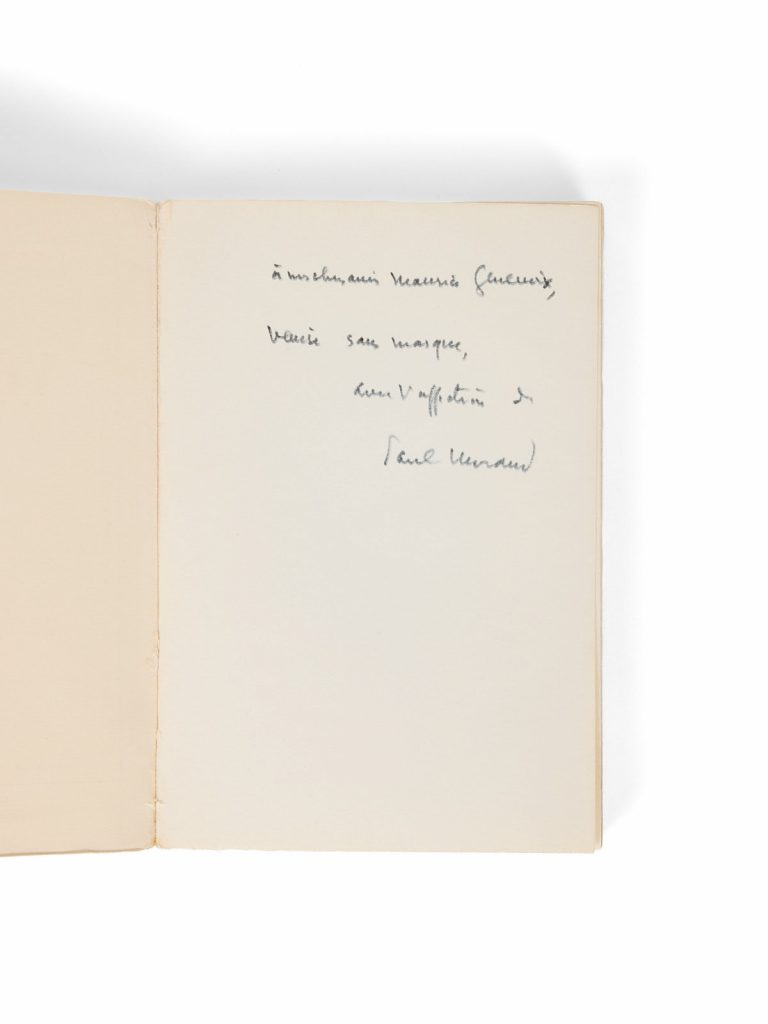 à mes chers amis Maurice Genevoix,
Venise sans masque,
avec l'affection de
Paul Morand